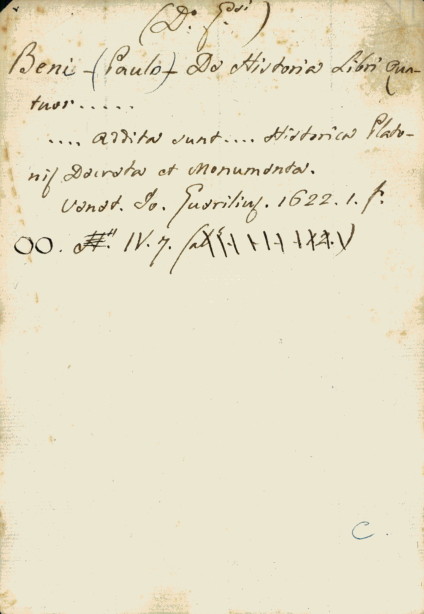 Beni - (Paulo) - De Historia Libri Qua-
tuor......
.... addita sunt.... Historica Plato-
nis Decreta et Monumenta.
Venet. Jo. Guerilius. 1622. 1. f.
OO. IV. 7.
C.